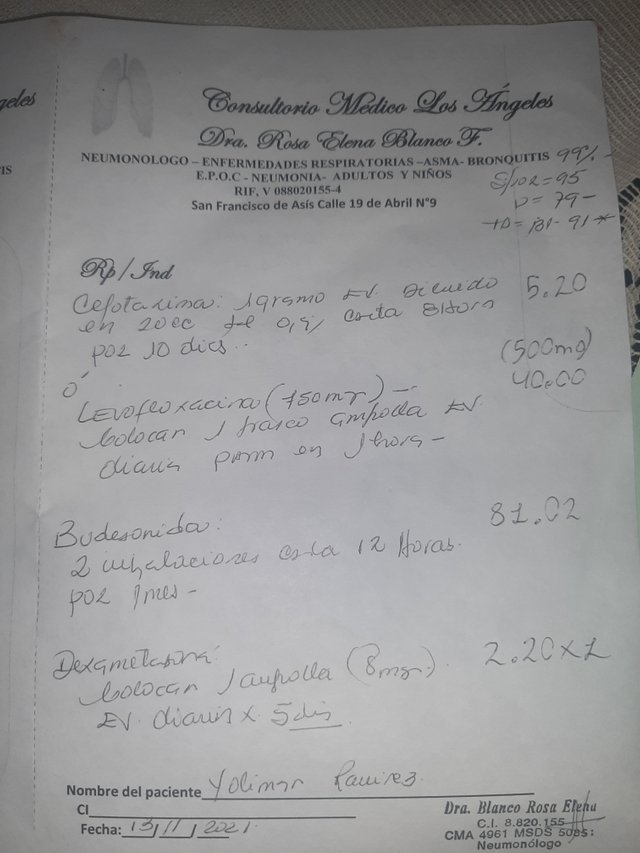 geles
IS
Consultorio Médico Los Ángeles
Dra. Rosa Elena Blanco F.
NEUMONOLOGO – ENFERMEDADES RESPIRATORIAS –ASMA- BRONQUITIS 99%.
E.P.O.C - NEUMONIA- ADULTOS Y NIÑOS
RIF, V 088020155-4
San Francisco de Asís Calle 19 de Abril N°9
= 95
P = 79 –
91 *
Rp / Ind
Cefotaxima: 1 gramo EV. Diluido 5.20
en 20cc de 0,9% cada 8 Hora
por 10 dias..
(500mg)
O'
Levofloxacina (750mgr) –. 40.00
Colocar 1 frasco ampolla EV.
diaria para en 1 hora –
Budesonida: 81.02
2 inhalaciones cada 12 Horas.
por 1 mes –
Dexametasona: 2.20 x 1
Colocar 1 ampolla (8mgr).
EV. diaria x 5 dis
Nombre del paciente Yolimar Ramirez.
CI
Fecha: 13/11/2021.
Dra. Blanco Rosa Elena
C.I. 8.820.155
CMA 4961 MSDS
Neumonólogo